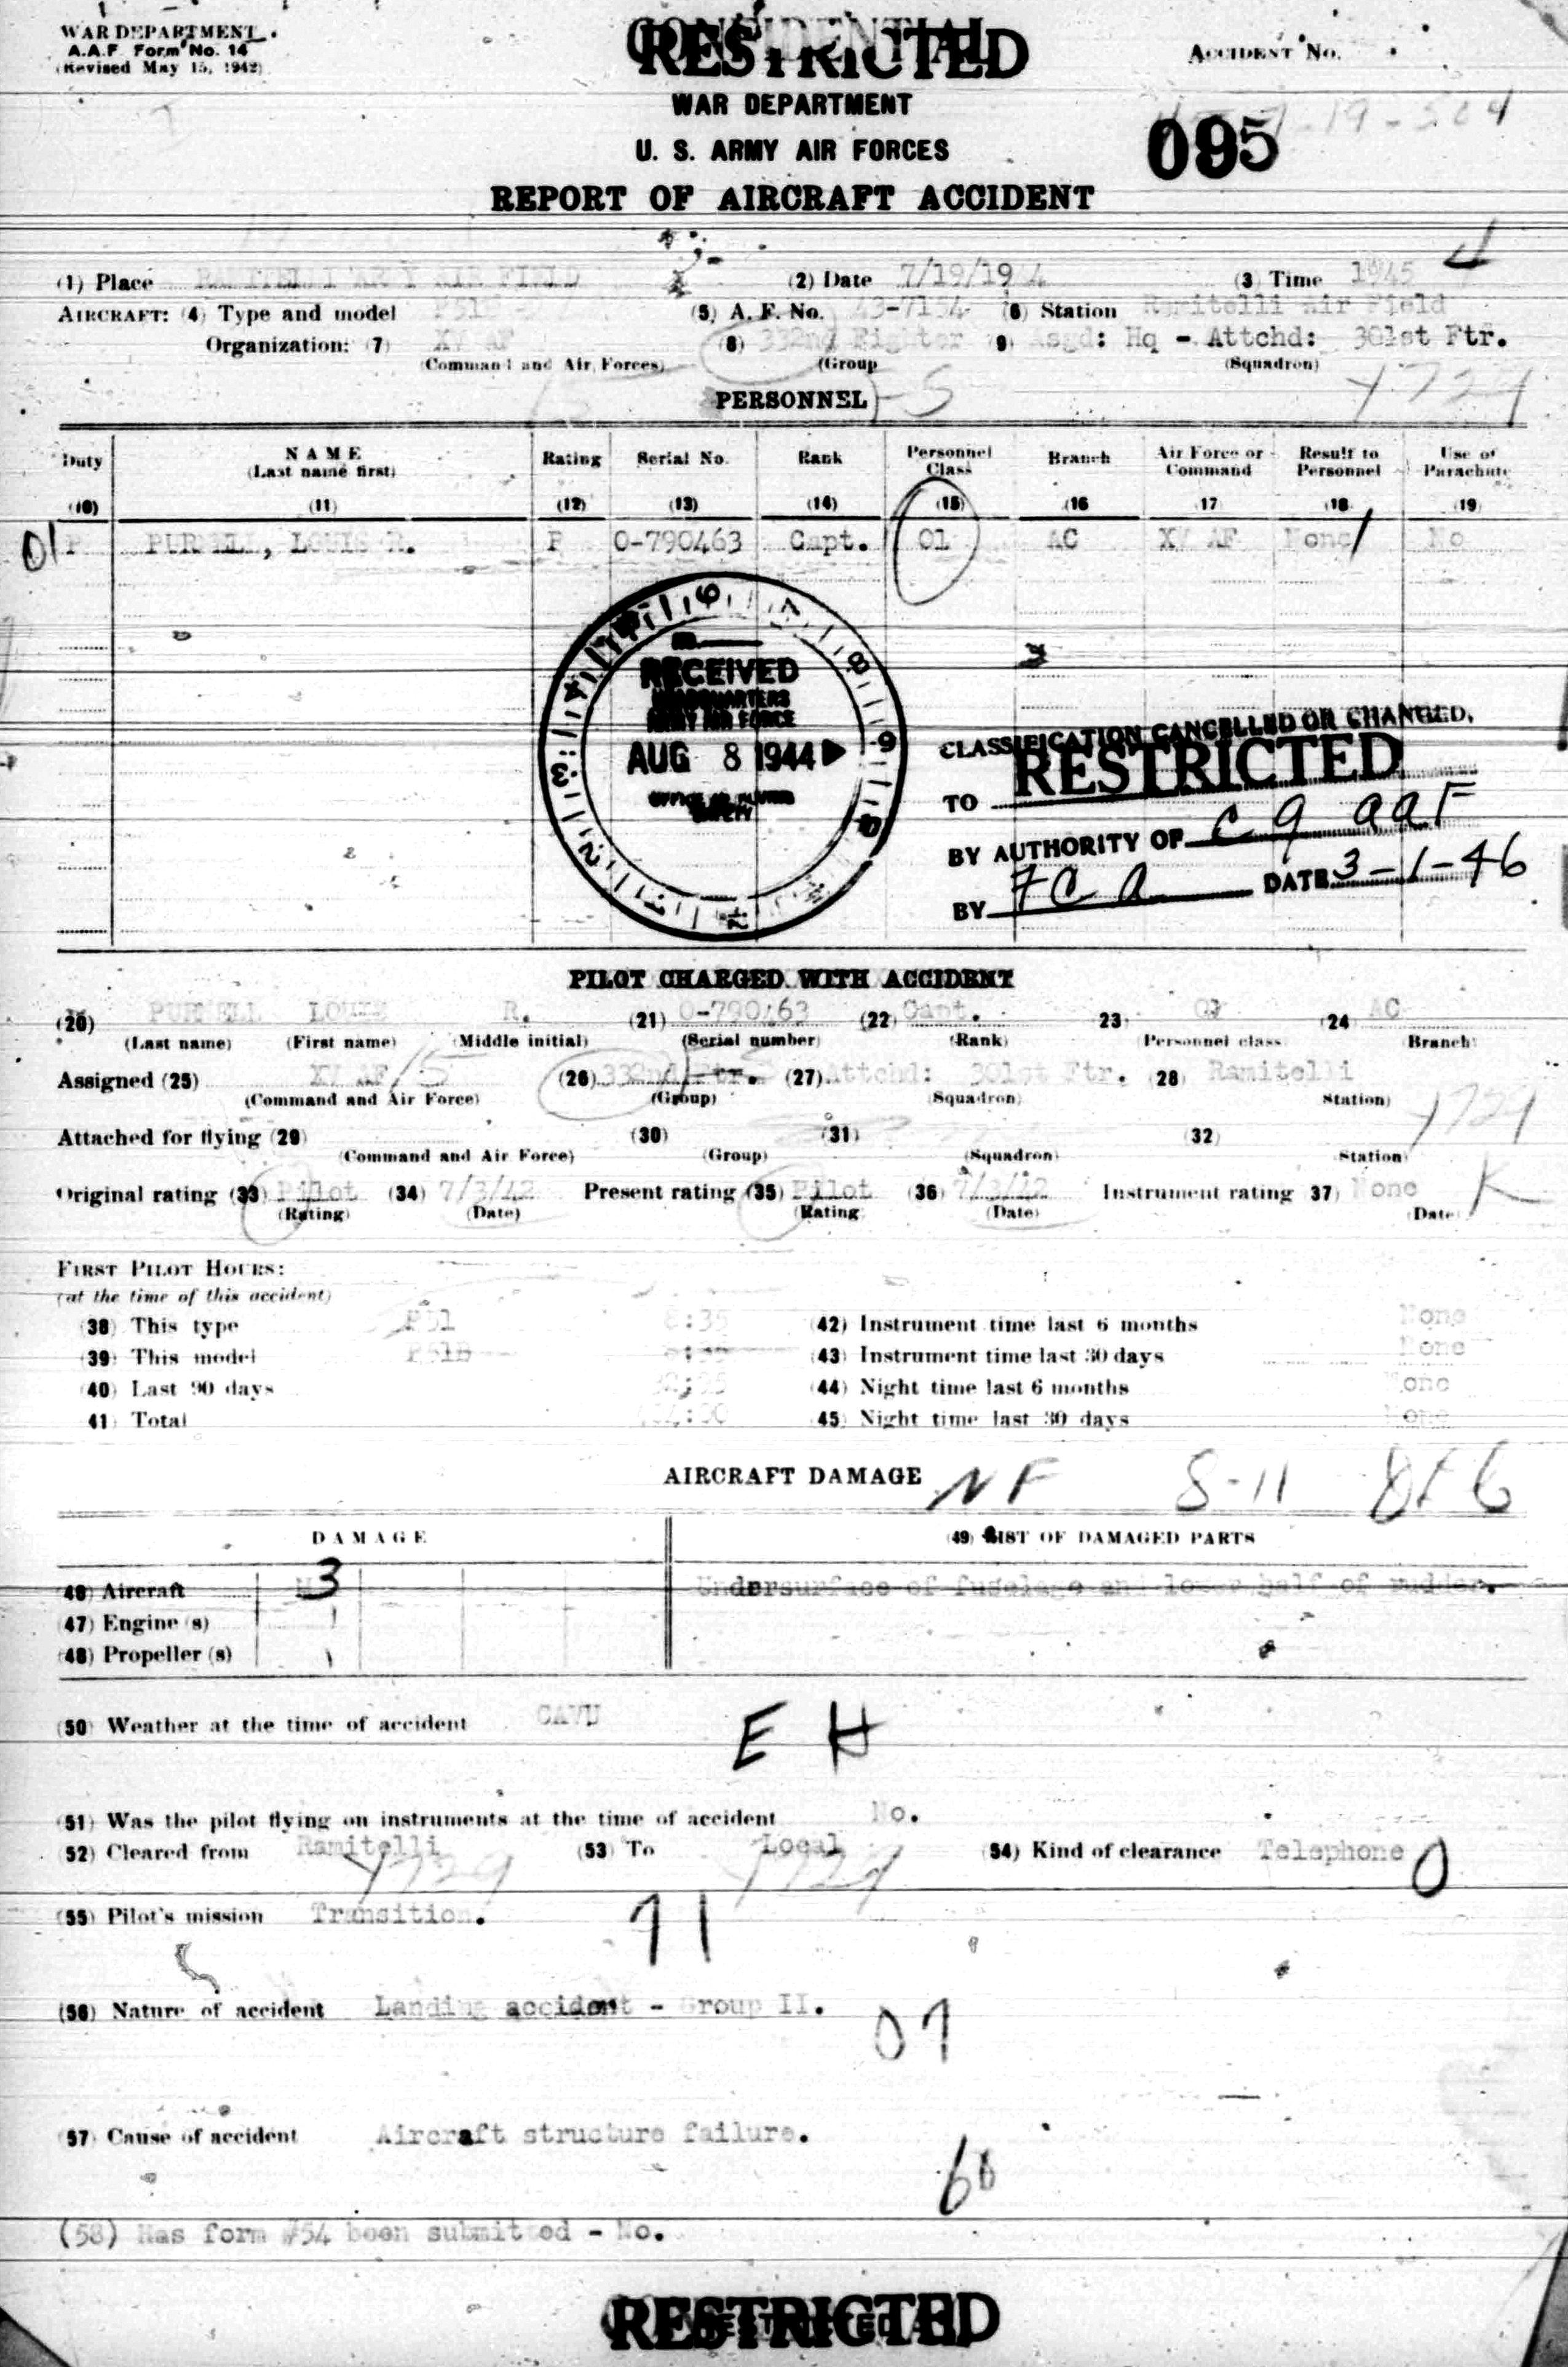 WAR DEPARTMENT
A.A.F Form No. 14
(Revised May 15, 1942)
RESTRICTED
ACCIDENT No.
WAR DEPARTMENT
U. S. ARMY AIR FORCES
095
REPORT OF AIRCRAFT ACCIDENT
(1) Place RAMITELLI ARMY AIR FIELD (2) Date 7/19/1944 (3) Time 1945
AIRCRAFT: (4) Type and model (5) A. F. No. 43-7154 (6) Station Ramitelli Air Field
Organization: (7) XV AF (8) 332nd Fighter (9) Asgd: Hq - Attchd: 301st Ftr.
(Command and Air Forces) (Group (Squadron)
PERSONNEL
Duty NAME Rating Serial No. Rank Personnel Class Branch Air Force or Command Result to Personnel Use of Parachute
(Last name first)
(10) (11) (12) (13) (14) (15) (16 (17 (18 (19)
01 P PURNELL, LOUIS R. P 0-790463 Capt. 01 AC XV AF None No
RECEIVED
HEADQUARTERS
ARMY AIR FORCE
AUG 8 1944
CLASSIFICATION CANCELLED OR CHANGED,
TO RESTRICTED
BY AUTHORITY OF C G AAF
BY FCA DATE 3-1-46
PILOT CHARGED WITH ACCIDENT
(20) PURNELL LOUIS R. (21) 0-790463 (22) Capt. 23) 01 (24) AC
(Last name) (First name) (Middle initial) (Serial number) (Rank) (Personnel class) Branch)
Assigned (25) XV AF/15 (26) 332nd Ftr. (27) Attchd: 301st Ftr. (28) Ramitelli
(Command and Air Force) (Group) (Squadron) Station)
Attached for flying (29) (30) (31) (32)
(Command and Air Force) (Group) (Squadron) Station)
Original rating (33) Pilot (34) 7/3/42 Present rating (35) Pilot (36) 7/3/42 Instrument rating 37) None K
(Rating) (Date) (Rating) (Date) (Date)
FIRST PILOT HOURS:
(at the time of this accident)
(38) This type P51 8:35 (42) Instrument time last 6 months None
(39) This model P51B 8:35 (43) Instrument time last 30 days None
(40) Last 90 days (44) Night time last 6 months None
41) Total (45) Night time last 30 days None
AIRCRAFT DAMAGE NF 8-11
DAMAGE (49) LIST OF DAMAGED PARTS
46) Aircraft 3 Undersurface of fuselage and lower half of rudder.
(47) Engine (s)
(48) Propeller (s)
(50) Weather at the time of accident CAVU E H
(51) Was the pilot flying on instruments at the time of accident No.
(52) Cleared from Ramitelli (53) To Local (54) Kind of clearance Telephone 0
(55) Pilot's mission Transition. 71
(56) Nature of accident Landing accident - Group II. 07
57) Cause of accident Aircraft structure failure. 60
(58) Has form #54 been submitted - No.
RESTRICTED